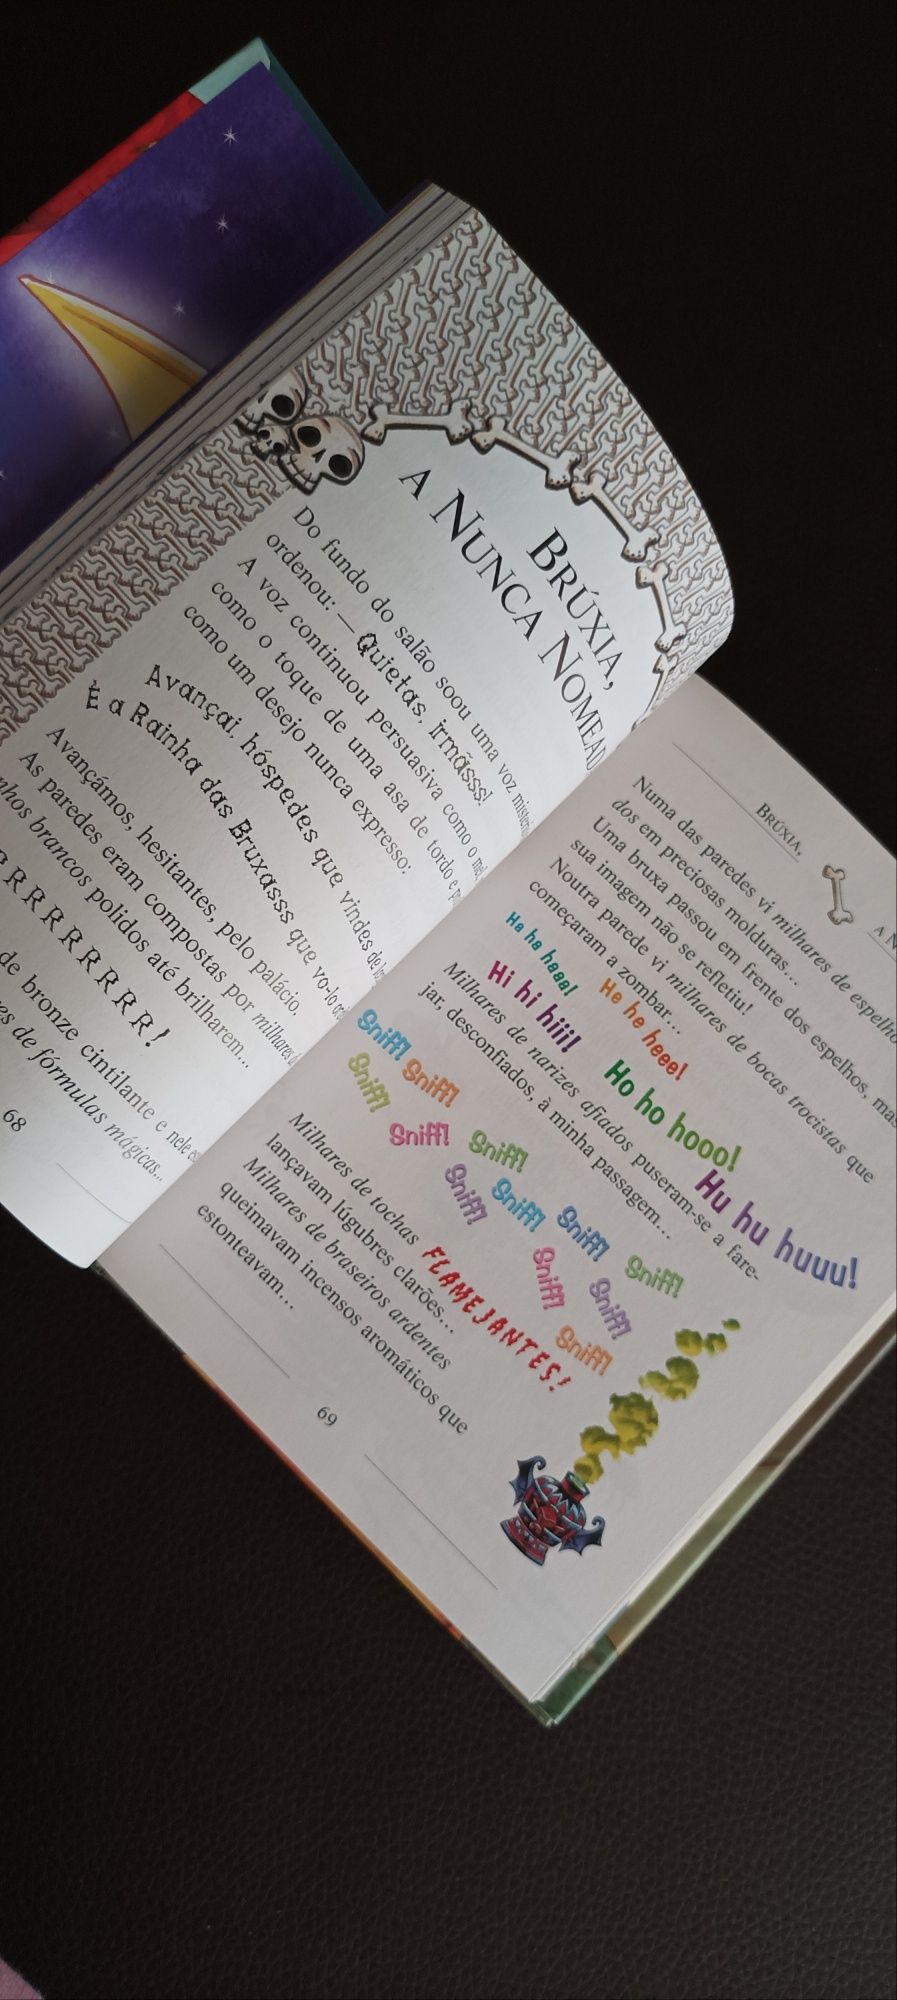 BRÚXIA,
A NUNCA
Do fundo do salão soou uma voz
ordenou: — Quietas, irmãsss!
A voz continuou persuasiva como o
como o toque de uma asa de tordo e
como um desejo nunca expresso:
Avançai, hóspedes que vindes de
É a Rainha das Bruxasss que vo-lo
Avançámos, hesitantes, pelo palácio.
As paredes eram compostas por milhares
brancos polidos até brilharem...
R R R R R R R R!
de bronze cintilante e nele
de fórmulas mágicas...
68
BRÚXIA,
A
Numa das paredes vi milhares de
dos em preciosas molduras...
Uma bruxa passou em frente dos espelhos, mas
sua imagem não se refletiu!
Noutra parede vi milhares de bocas trocistas que
começaram a zombar...
Ha ha haaa!
He he heee!
Hi hi hiii!
Ho ho hooo!
Hu hu huuu!
Milhares de narizes afiados puseram-se a fare-
jar, desconfiados, à minha passagem...
Sniff! Sniff! Sniff! Sniff! Sniff! Sniff! Sniff! Sniff! Sniff! Sniff! Sniff! Sniff!
Milhares de tochas FLAMEJANTES!
lançavam lúgubres clarões...
Milhares de braseiros ardentes
queimavam incensos aromáticos que
estonteavam...
69